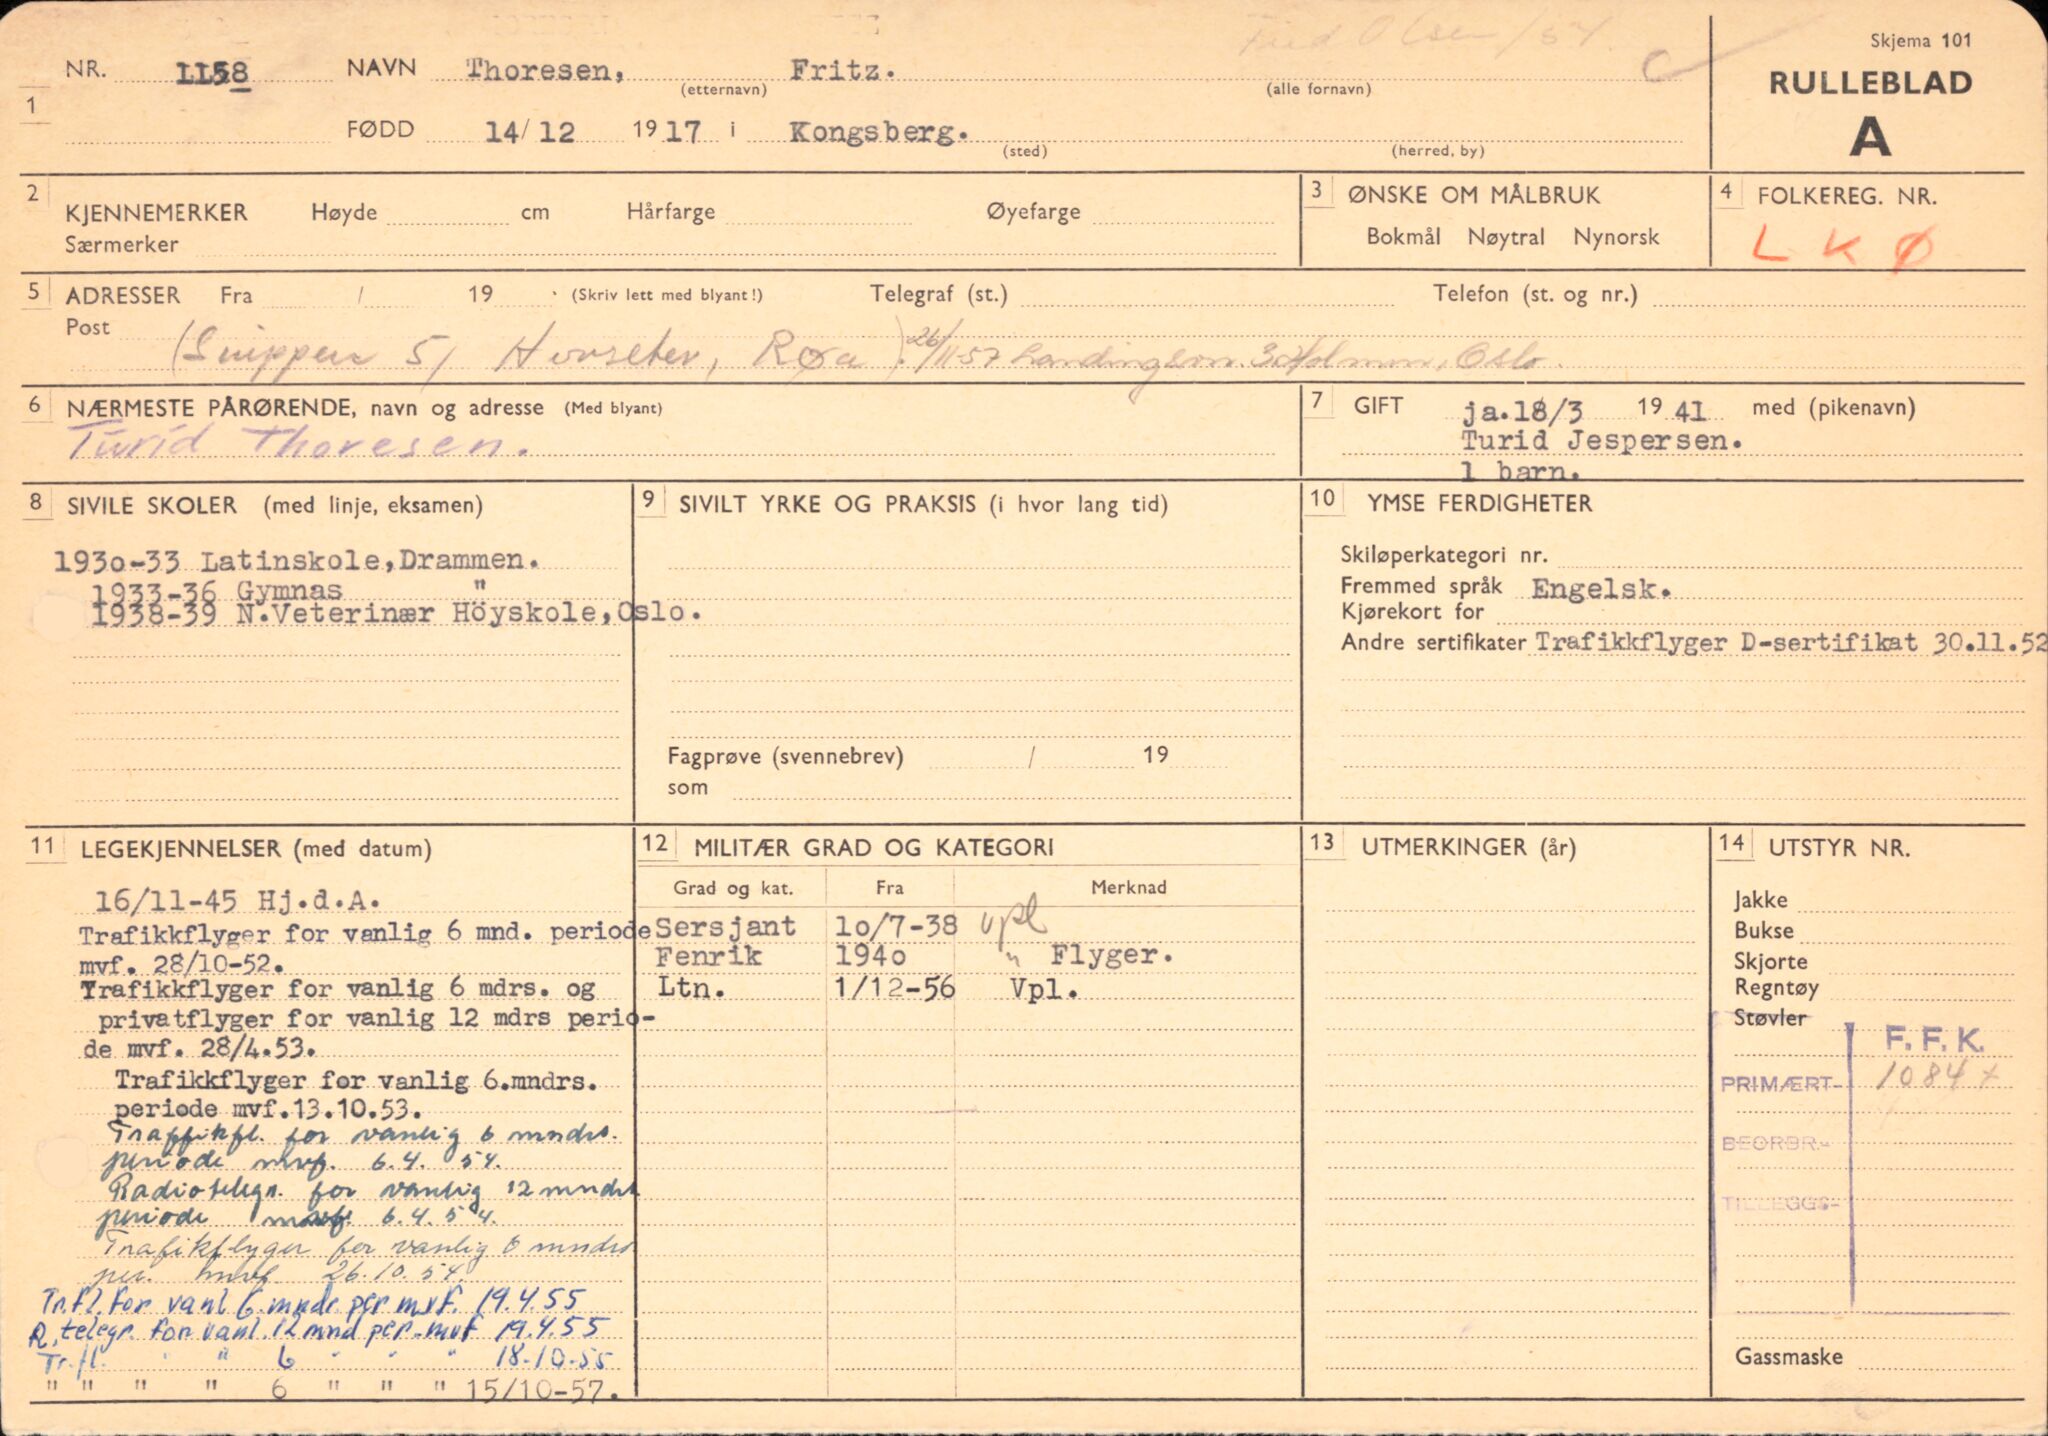 Fred Olsen /54.
Skjema 101
NR. 1158 NAVN Thoresen, Fritz.
(etternavn) (alle fornavn)
RULLEBLAD
A
1
FØDD 14/12 1917 i Kongsberg.
(sted) (herred, by)
2 KJENNEMERKER Høyde cm Hårfarge Øyefarge
Særmerker
3 ØNSKE OM MÅLBRUK
Bokmål Nøytral Nynorsk
4 FOLKEREG. NR.
L K Ø
5 ADRESSER Fra / 19 (Skriv lett med blyant!) Telegraf (st.) Telefon (st. og nr.)
Post
(Snippen 5, Hovseter, Røa). 26/11-57 Landingsvn. 30 Holmen, Oslo.
6 NÆRMESTE PÅRØRENDE, navn og adresse (Med blyant)
Turid Thoresen.
7 GIFT ja. 18/3 1941 med (pikenavn)
Turid Jespersen.
1 barn.
8 SIVILE SKOLER (med linje, eksamen)
193o-33 Latinskole,Drammen.
1933-36 Gymnas "
1938-39 N.Veterinær Höyskole,Oslo.
9 SIVILT YRKE OG PRAKSIS (i hvor lang tid)
Fagprøve (svennebrev) / 19
som
10 YMSE FERDIGHETER
Skiløperkategori nr.
Fremmed språk Engelsk.
Kjørekort for
Andre sertifikater Trafikkflyger D-sertifikat 30.11.52
11 LEGEKJENNELSER (med datum)
16/11-45 Hj.d.A.
Trafikkflyger for vanlig 6 mnd. periode
mvf. 28/10-52.
Trafikkflyger for vanlig 6 mdrs. og
privatflyger for vanlig 12 mdrs perio-
de mvf. 28/4.53.
Trafikkflyger for vanlig 6.mndrs.
periode mvf.13.10.53.
Traffikfl. for vanlig 6 mndrs.
periode mvf. 6.4. 54.
Radiotelegr. for vanlig 12 mndrs
periode mvf. 6.4.54.
Trafikflyger for vanlig 6 mndrs
per. mvf 26.10.54.
Tr.fl. for vanl 6. mndr per mvf. 19.4.55
R.telegr. for vanl. 12 mnd per. mvf 19.4.55
Tr.fl. " " 6 " " " 18-10-55
" " " " 6 " " " 15/10-57.
12 MILITÆR GRAD OG KATEGORI
Grad og kat. Fra Merknad
Sersjant 1o/7-38 vpl
Fenrik 194o " Flyger.
Ltn. 1/12-56 Vpl.
13 UTMERKINGER (år)
14 UTSTYR NR.
Jakke
Bukse
Skjorte
Regntøy
Støvler
F. F. K.
PRIMÆRT- 1084 x
BEORDR.-
TILLEGGS.-
Gassmaske